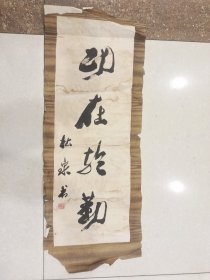 功在於勤
松泉书